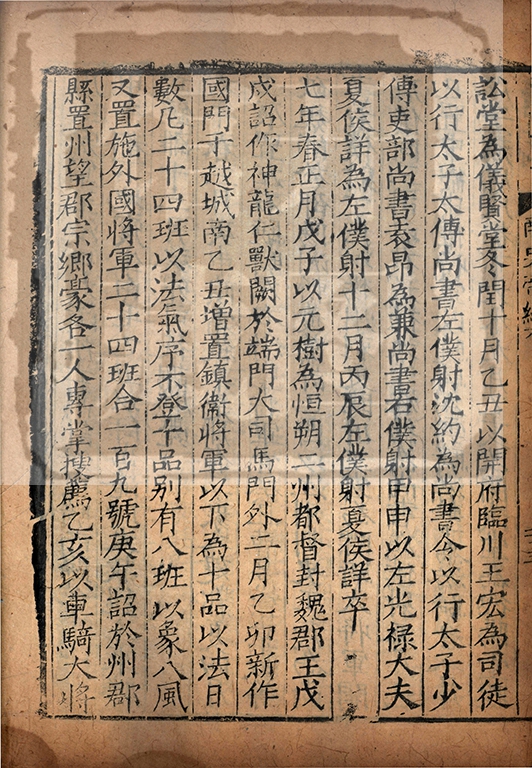 訟堂為儀賢堂冬閏十月乙丑以開府臨川王宏為司徒
以行太子太傅尚書左僕射沈約為尚書令以行太子少
傅吏部尚書袁昂為兼尚書右僕射甲申以左光禄大夫
夏侯詳為左僕射十二月丙辰左僕射夏侯詳卒
七年春正月戊子以元樹為恒朔二州都督封魏郡王戊
戍詔作神龍仁獸闕於端門大司馬門外二月乙卯新作
國門于越城南乙丑增置鎮衛將軍以下為十品以法日
數凡二十四班以法氣序不登十品别有八班以象八風
又置施外國將軍二十四班合一百九號庚午詔於州郡
縣置州望郡宗鄉豪各一人專掌搜薦乙亥以車騎大將